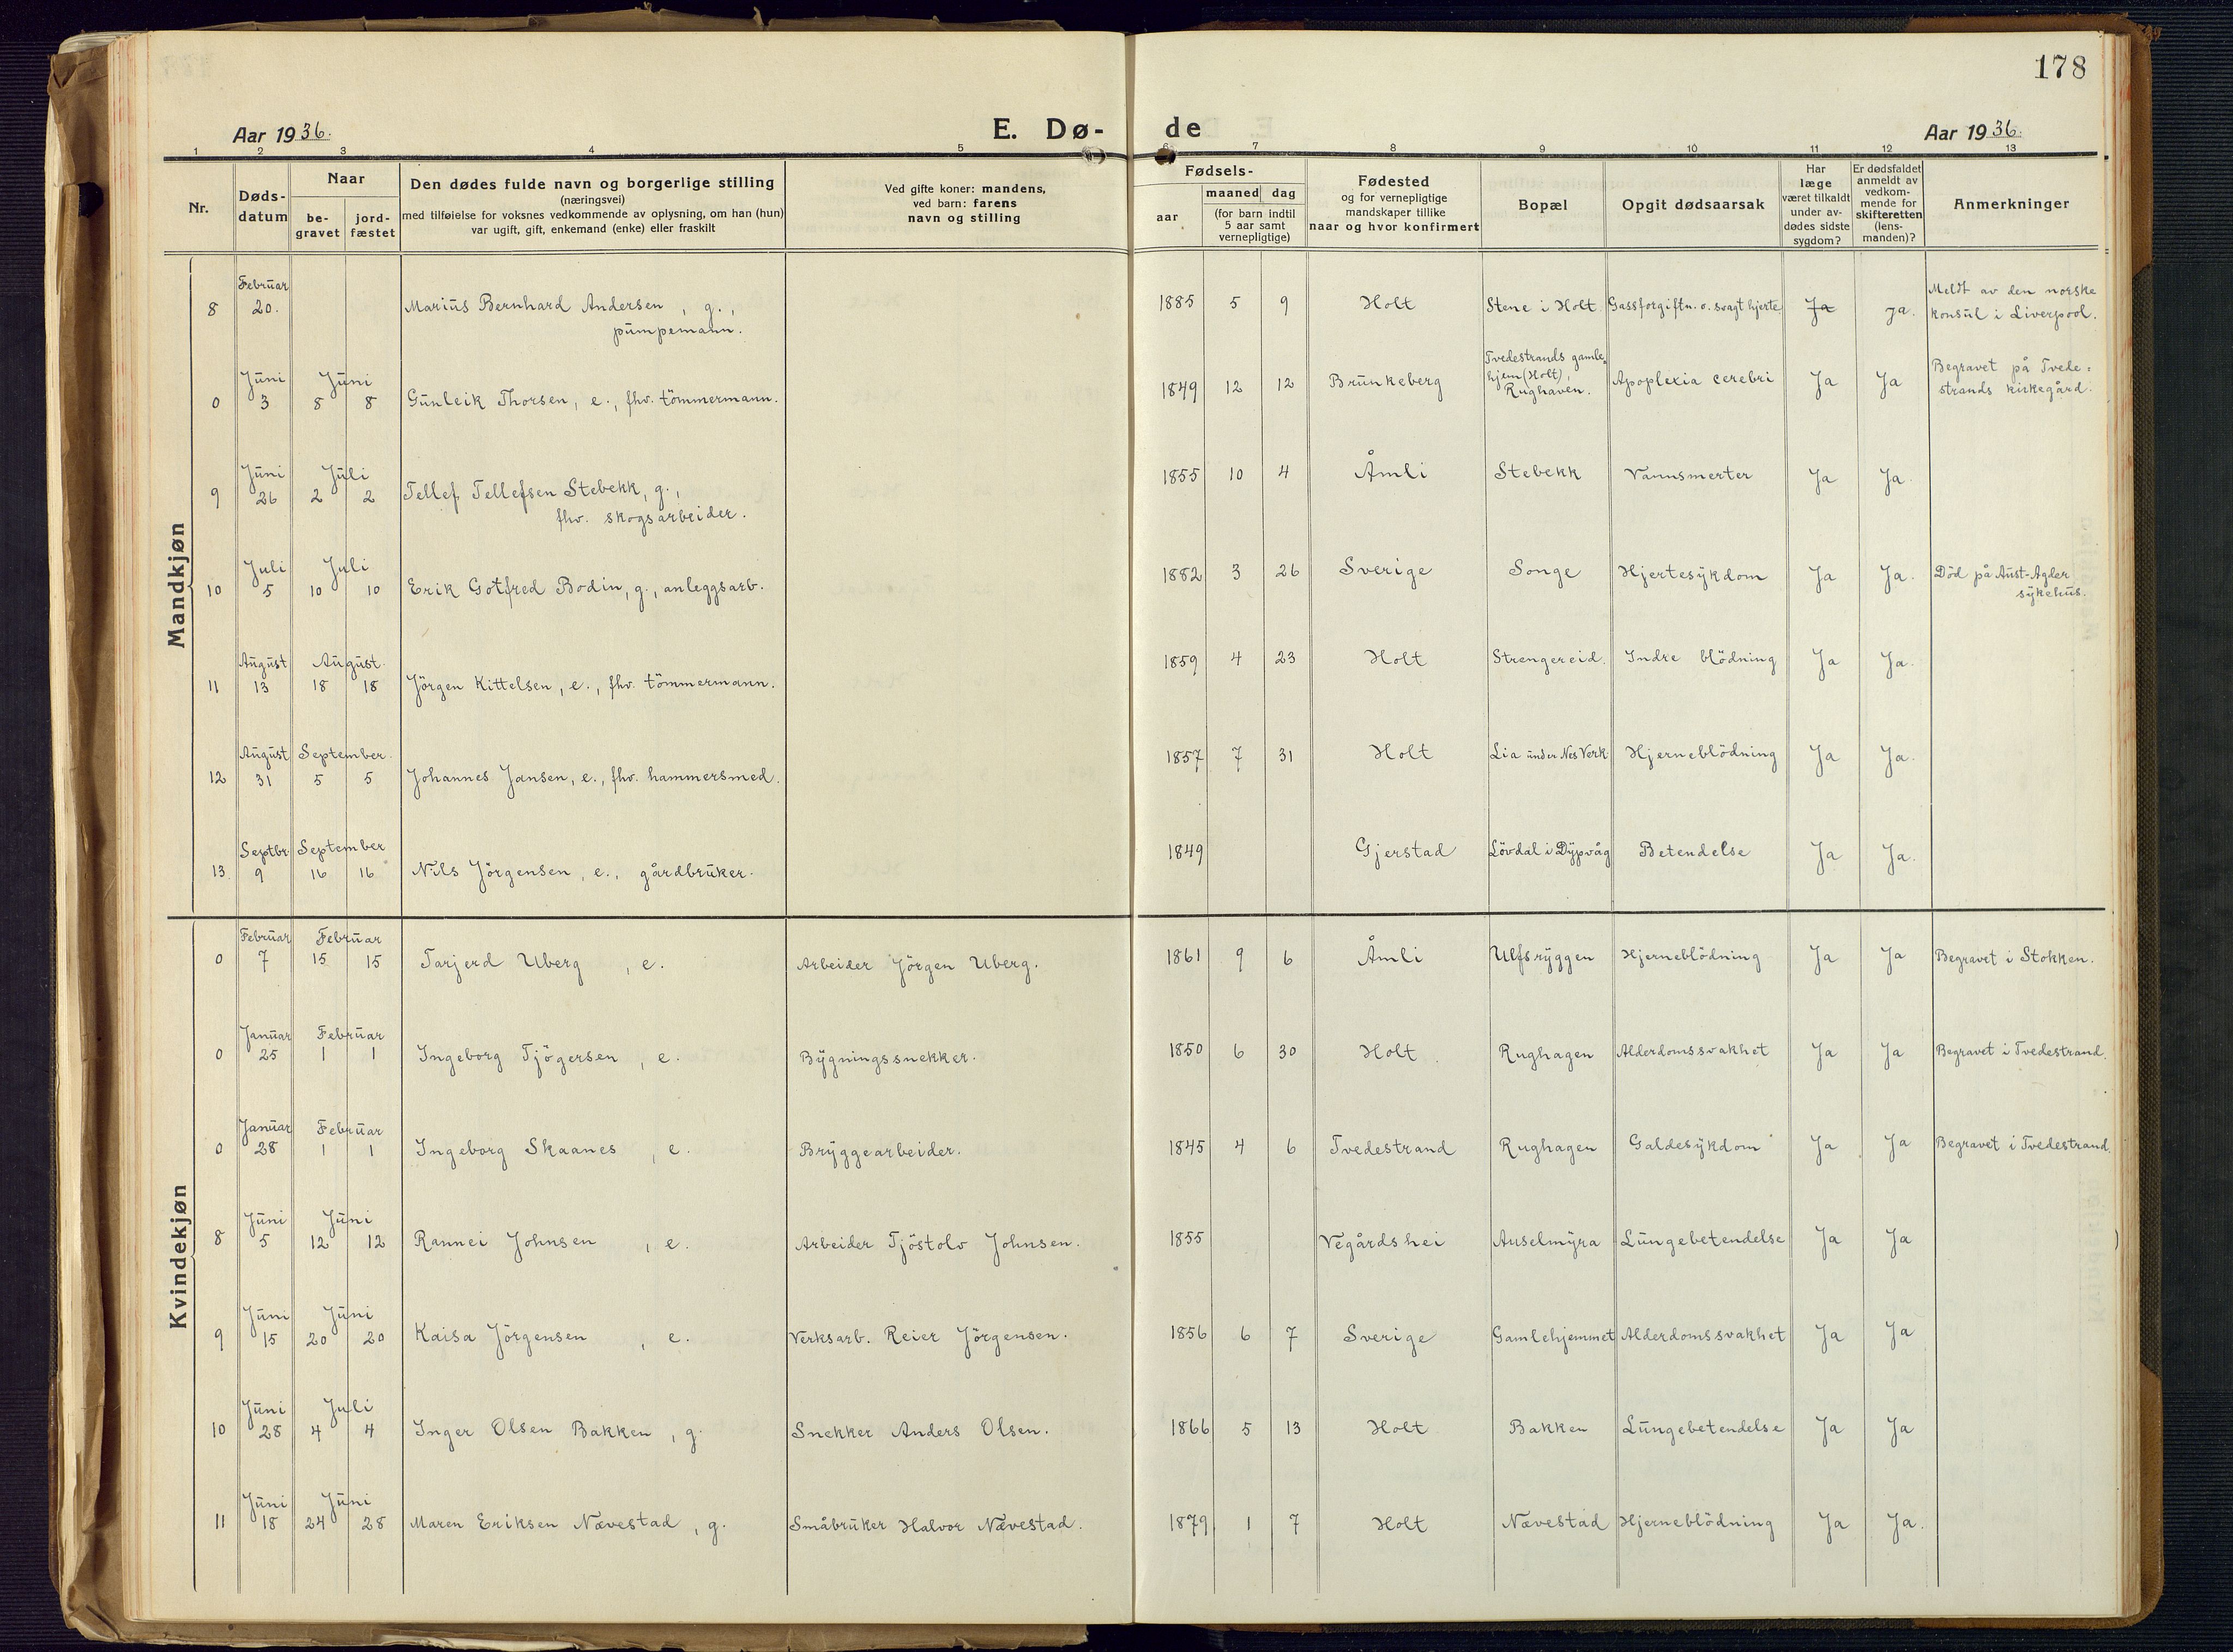 178
Aar 1936.
E. Dø-
de
Aar 1936.
1 2 3 4 5 6 7 8 9 10 11 12 13
Nr.
Døds-
datum
Naar
be-
gravet
jord-
fæstet
Den dødes fulde navn og borgerlige stilling
(næringsvei)
med tilføielse for voksnes vedkommende av oplysning, om han (hun)
var ugift, gift, enkemand (enke) eller fraskilt
Ved gifte koner: mandens,
ved barn: farens
navn og stilling
Fødsels-
aar
maaned dag
(for barn indtil
5 aar samt
vernepligtige)
Fødested
og for vernepligtige
mandskaper tillike
naar og hvor konfirmert
Bopæl
Opgit dødsaarsak
Har
læge
været tilkaldt
under av-
dødes sidste
sygdom?
Er dødsfaldet
anmeldt av
vedkom-
mende for
skifteretten
(lens-
manden)?
Anmerkninger
Mandkjøn
Februar
8 20. Marius Bernhard Andersen, g.,
pumpemann.
1885 5 9 Holt Stene i Holt. Gassforgiftn. o. svagt hjerte Ja Ja.
Meldt av den norske
konsul i Liverpool.
Juni Juni
0 3 8 8 Gunleik Thorsen, e., fhv. tömmermann.
1849 12 12 Brunkeberg
Tvedestrands gamle=
hjem (Holt),
Rughaven.
Apoplexia cerebri Ja Ja
Begravet på Tvede=
strands kirkegård.
Juni Juli
9 26 2 2 Tellef Tellefsen Stebekk, g.,
fhv. skogsarbeider.
1855 10 4 Åmli Stebekk Vannsmerter Ja Ja.
Juli Juli
10 5 10 10 Erik Gotfred Bodin, g., anleggsarb.
1882 3 26 Sverige Songe Hjertesykdom Ja Ja.
Död på Aust-Agder
sykehus.
August August.
11 13 18 18 Jörgen Kittelsen, e., fhv. tömmermann.
1859 4 23 Holt Strengereid. Indre blödning Ja Ja.
August September.
12 31 5 5 Johannes Jansen, e., fhv. hammersmed.
1857 7 31 Holt Lia under Nes Verk Hjerneblödning Ja Ja.
Septbr. September
13. 9 16 16 Nils Jörgensen, e., gårdbruker.
1849 Gjerstad Lövdal i Dypvåg Betendelse Ja Ja.
Kvindekjøn
Februar Februar
0 7 15 15 Tarjerd Uberg, e. Arbeider Jörgen Uberg.
1861 9 6 Åmli Ulfsryggen Hjerneblödning Ja Ja Begravet i Stokken.
Januar Februar
0 25 1 1 Ingeborg Tjögersen, e. Bygningssnekker.
1850 6 30 Holt. Rughagen Alderdomssvakhet Ja Ja Begravet i Tvedestrand.
Januar Februar
0 28 1 1 Ingeborg Skaanes, e. Bryggearbeider.
1845 4 6 Tvedestrand Rughagen Galdesykdom Ja Ja Begravet i Tvedestrand.
Juni Juni
8 5 12 12 Rannei Johnsen, e. Arbeider Tjöstolv Johnsen.
1855 Vegårdshei Auselmyra Lungebetendelse Ja Ja
Juni Juni
9 15 20 20 Kaisa Jörgensen, e. Verksarb. Reier Jörgensen.
1856 6 7 Sverige Gamlehjemmet Alderdomssvakhet Ja Ja
Juni Juli
10 28 4 4 Inger Olsen Bakken, g. Snekker Anders Olsen.
1866 5 13 Holt Bakken Lungebetendelse Ja Ja
Juni Juni
11 18 24 28 Maren Eriksen Nævestad, g. Småbruker Halvor Nævestad.
1879 1 7 Holt Nævestad Hjerneblödning Ja Ja.